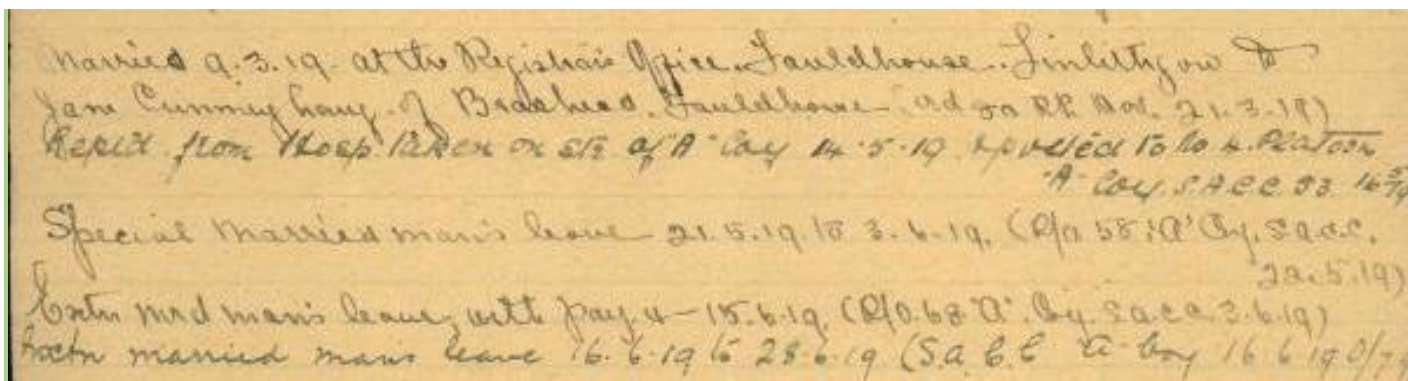 Married 9.3.19. at the Registrars Office. Fauldhouse. Linlithgow to
Jane Cunninghame. of Braehead. Fauldhouse 21.3.19)
from Hosp taken on str of "A" Coy 14.5.19 posted to No 4. Platoon
"A" Coy. S.A.C.C. 53 16/5/19
Special Married man's leave 21.5.19. to 3.6.19. (R/O 58 "A" Coy. S.A.C.C.
5.19)
Extn mrd man's leave, with pay, 4-15.6.19. (R/O.68 "A". Coy S.A.C.C. 3.6.19)
Extn married mans leave 16.6.19 to 28.6.19 (S.A.C.C A Coy 16 6 19